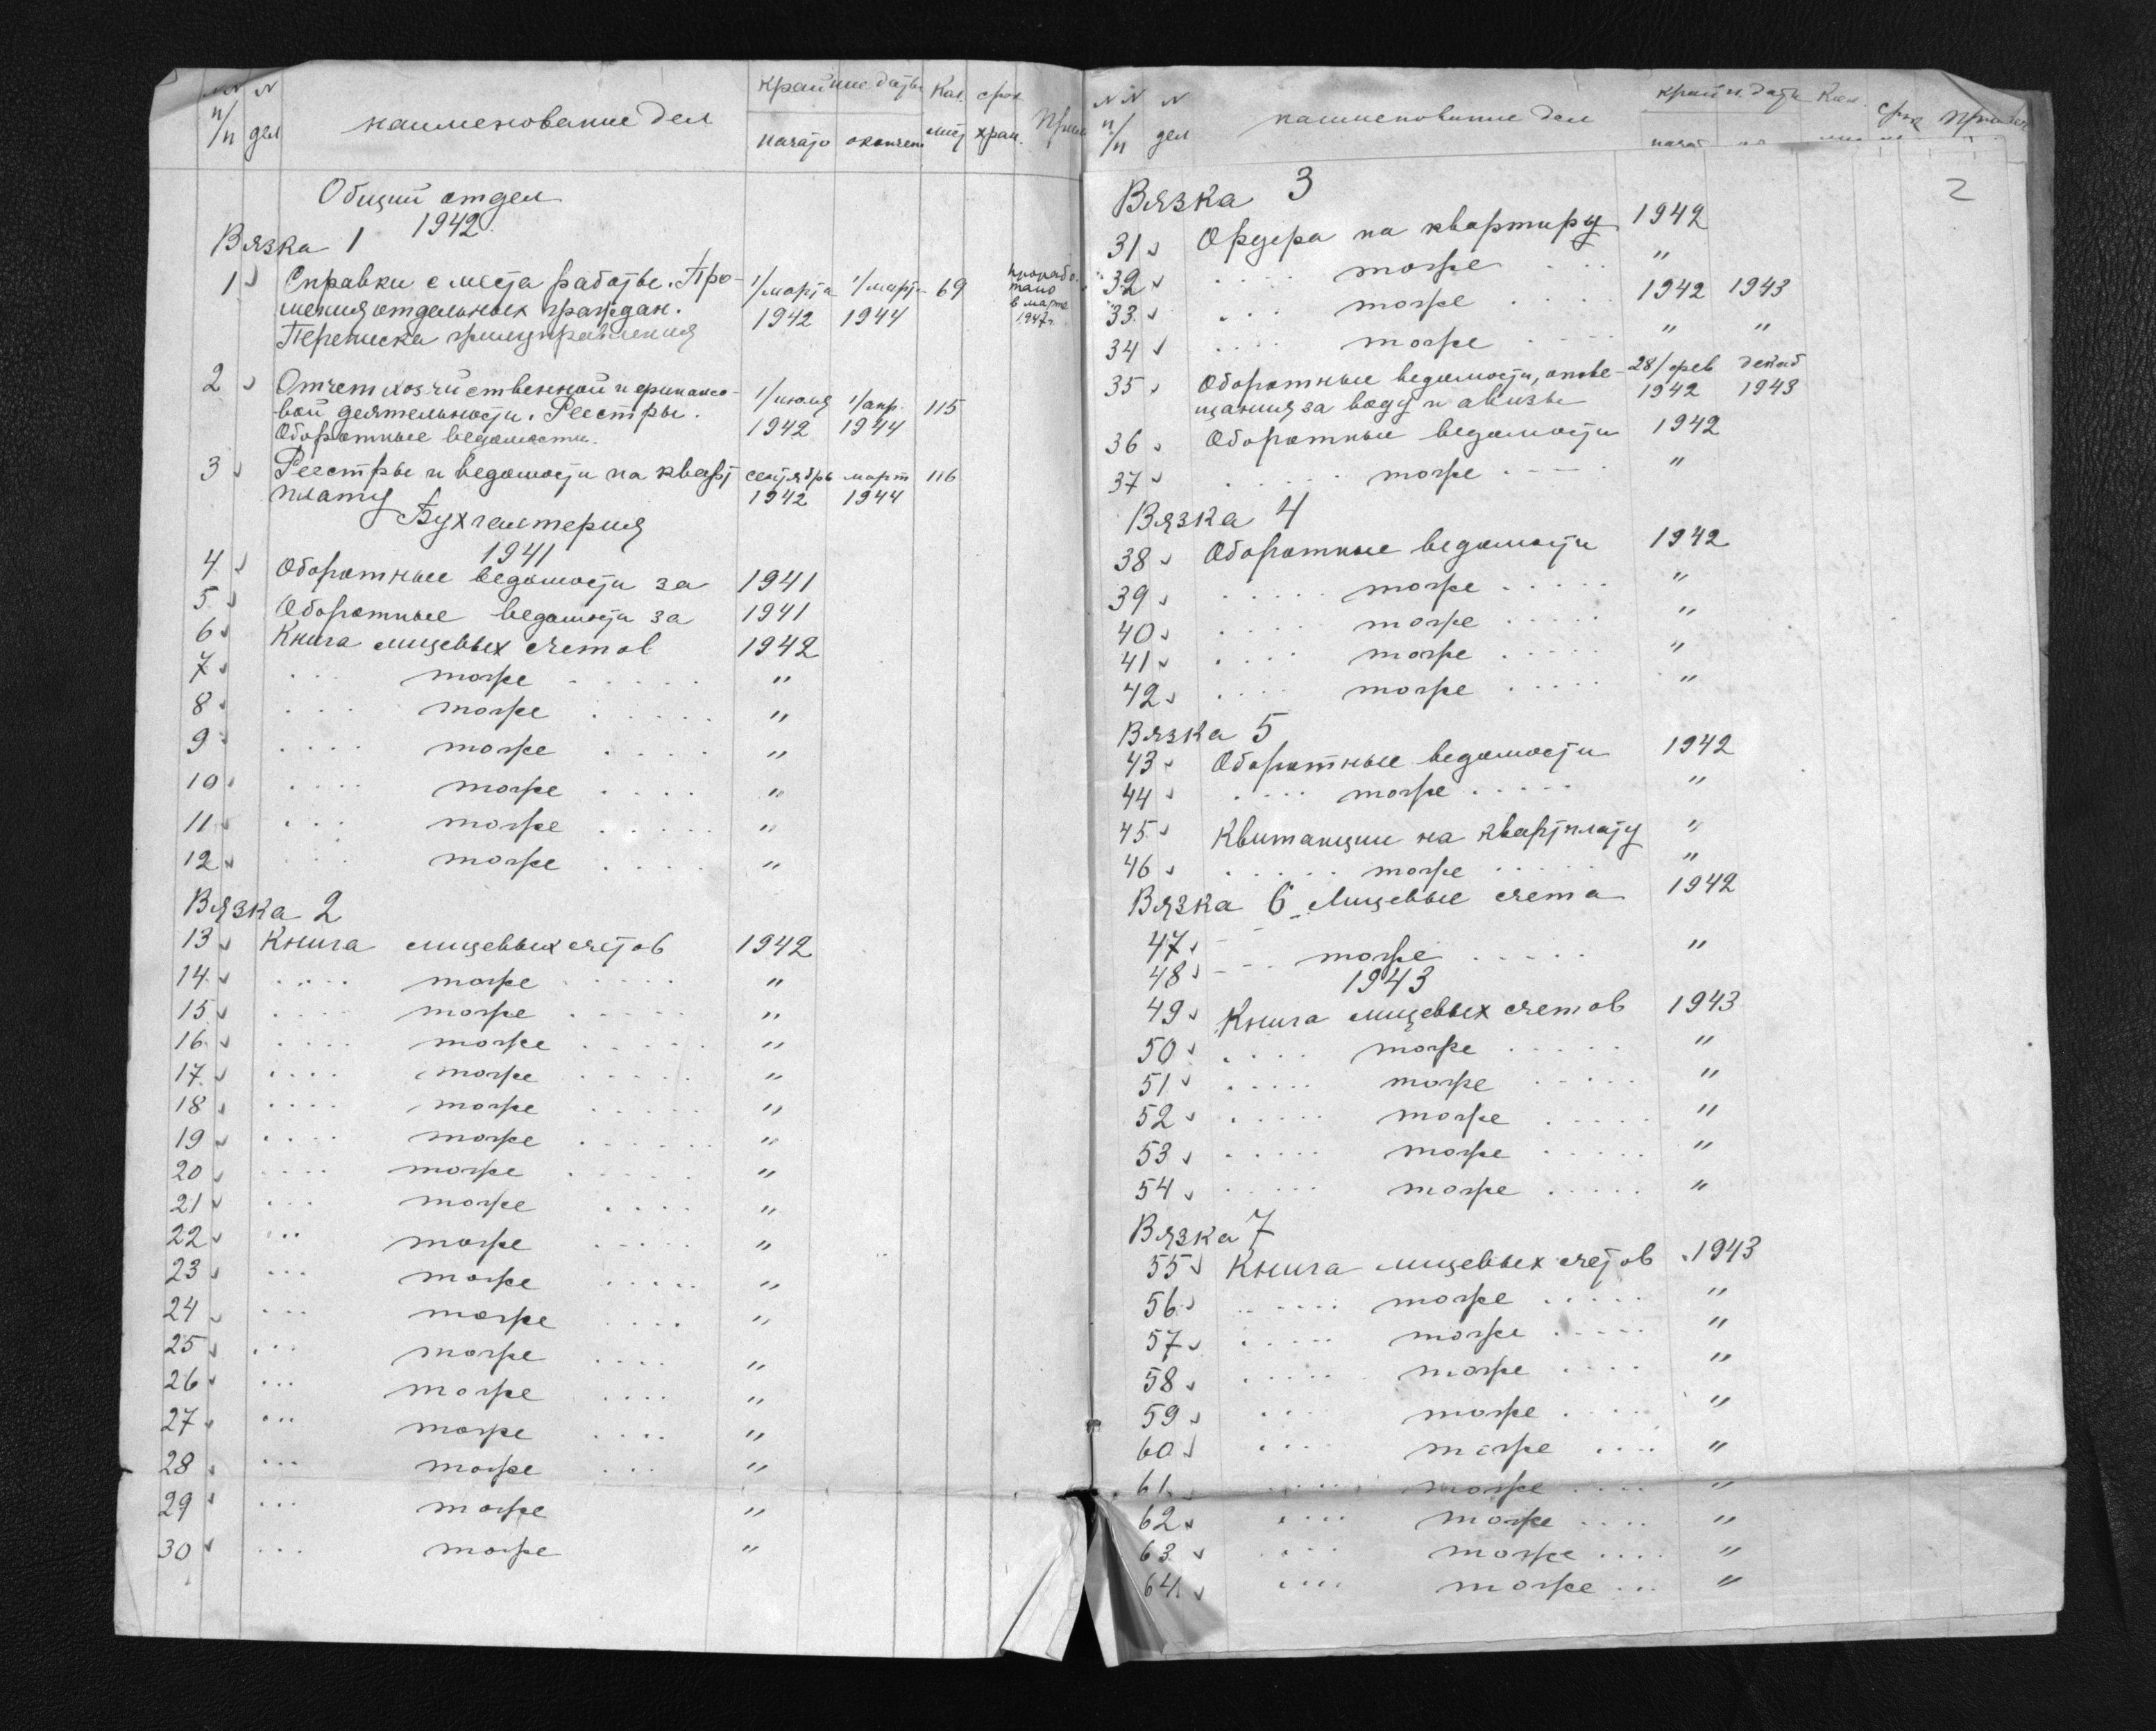 NN N наименование дел крайние даты Кол. срок Прим
п/п дел начато окончен лист хран.
Общий отдел
1942
Вязка 1
1 Справки с места работы. Про- 1/марта 1/марта 69 прорабо-
шения отдельных граждан. 1942 1944 тано
Переписка жилуправления в марте
1947г.
2 Отчет хозяйственной и финансо- 1/июля 1/апр. 115
вой деятельности. Реестры. 1942 1944
Оборотные ведомости.
3 Реестры и ведомости на кварт сентябрь март 116
плату 1942 1944
Бухгалтерия
1941
4 Оборотные ведомости за 1941
5 Оборотные ведомости за 1941
6 Книга лицевых счетов 1942
7 ... тоже ..... "
8 ... тоже ..... "
9 .... тоже .... "
10 .... тоже .... "
11 ... тоже ..... "
12 ... тоже .... "
Вязка 2
13 Книга лицевых счетов 1942
14 .... тоже ..... "
15 .... тоже ..... "
16 .... тоже ..... "
17 .... тоже ..... "
18 .... тоже ..... "
19 .... тоже ...... "
20 .... тоже ..... "
21 ... тоже .... "
22 ... тоже ..... "
23 ... тоже ..... "
24 ... тоже .... "
25 ... тоже .... "
26 ... тоже .... "
27 ... тоже .... "
28 ... тоже ... "
29 ... тоже "
30 ... тоже "
NN N наименование дел крайн. даты Кол. срок Примеч
п/п дел начат
2
Вязка 3
31 Ордера на квартиру 1942
32 .... тоже ... "
33 ... тоже .... 1942 1943
34 .... тоже .... " "
35 Оборотные ведомости, опове- 28/фев декаб
щания за воду и авизы 1942 1943
36 Оборотные ведомости 1942
37 ..... тоже .... "
Вязка 4
38 Оборотные ведомости 1942
39 ..... тоже ..... "
40 .... тоже ..... "
41 .... тоже ..... "
42 .... тоже ..... "
Вязка 5
43 Оборотные ведомости 1942
44 .... тоже ..... "
45 Квитанции на квартплату "
46 ..... тоже ..... "
Вязка 6 Лицевые счета 1942
47 - -
48 - - - тоже ..... "
1943
49 Книга лицевых счетов 1943
50 .... тоже ..... "
51 ..... тоже ..... "
52 ..... тоже ..... "
53 ..... тоже ..... "
54 ..... тоже ..... "
Вязка 7
55 Книга лицевых счетов 1943
56 ..... тоже ..... "
57 ..... тоже ..... "
58 ..... тоже .... "
59 .... тоже .... "
60 .... тоже .... "
61 ..... тоже .... "
62 .... тоже .... "
63 .... тоже .... "
64 .... тоже ... "